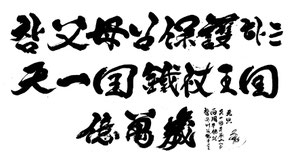 참父母님保護하는
天一国鐵杖王国
億萬歲